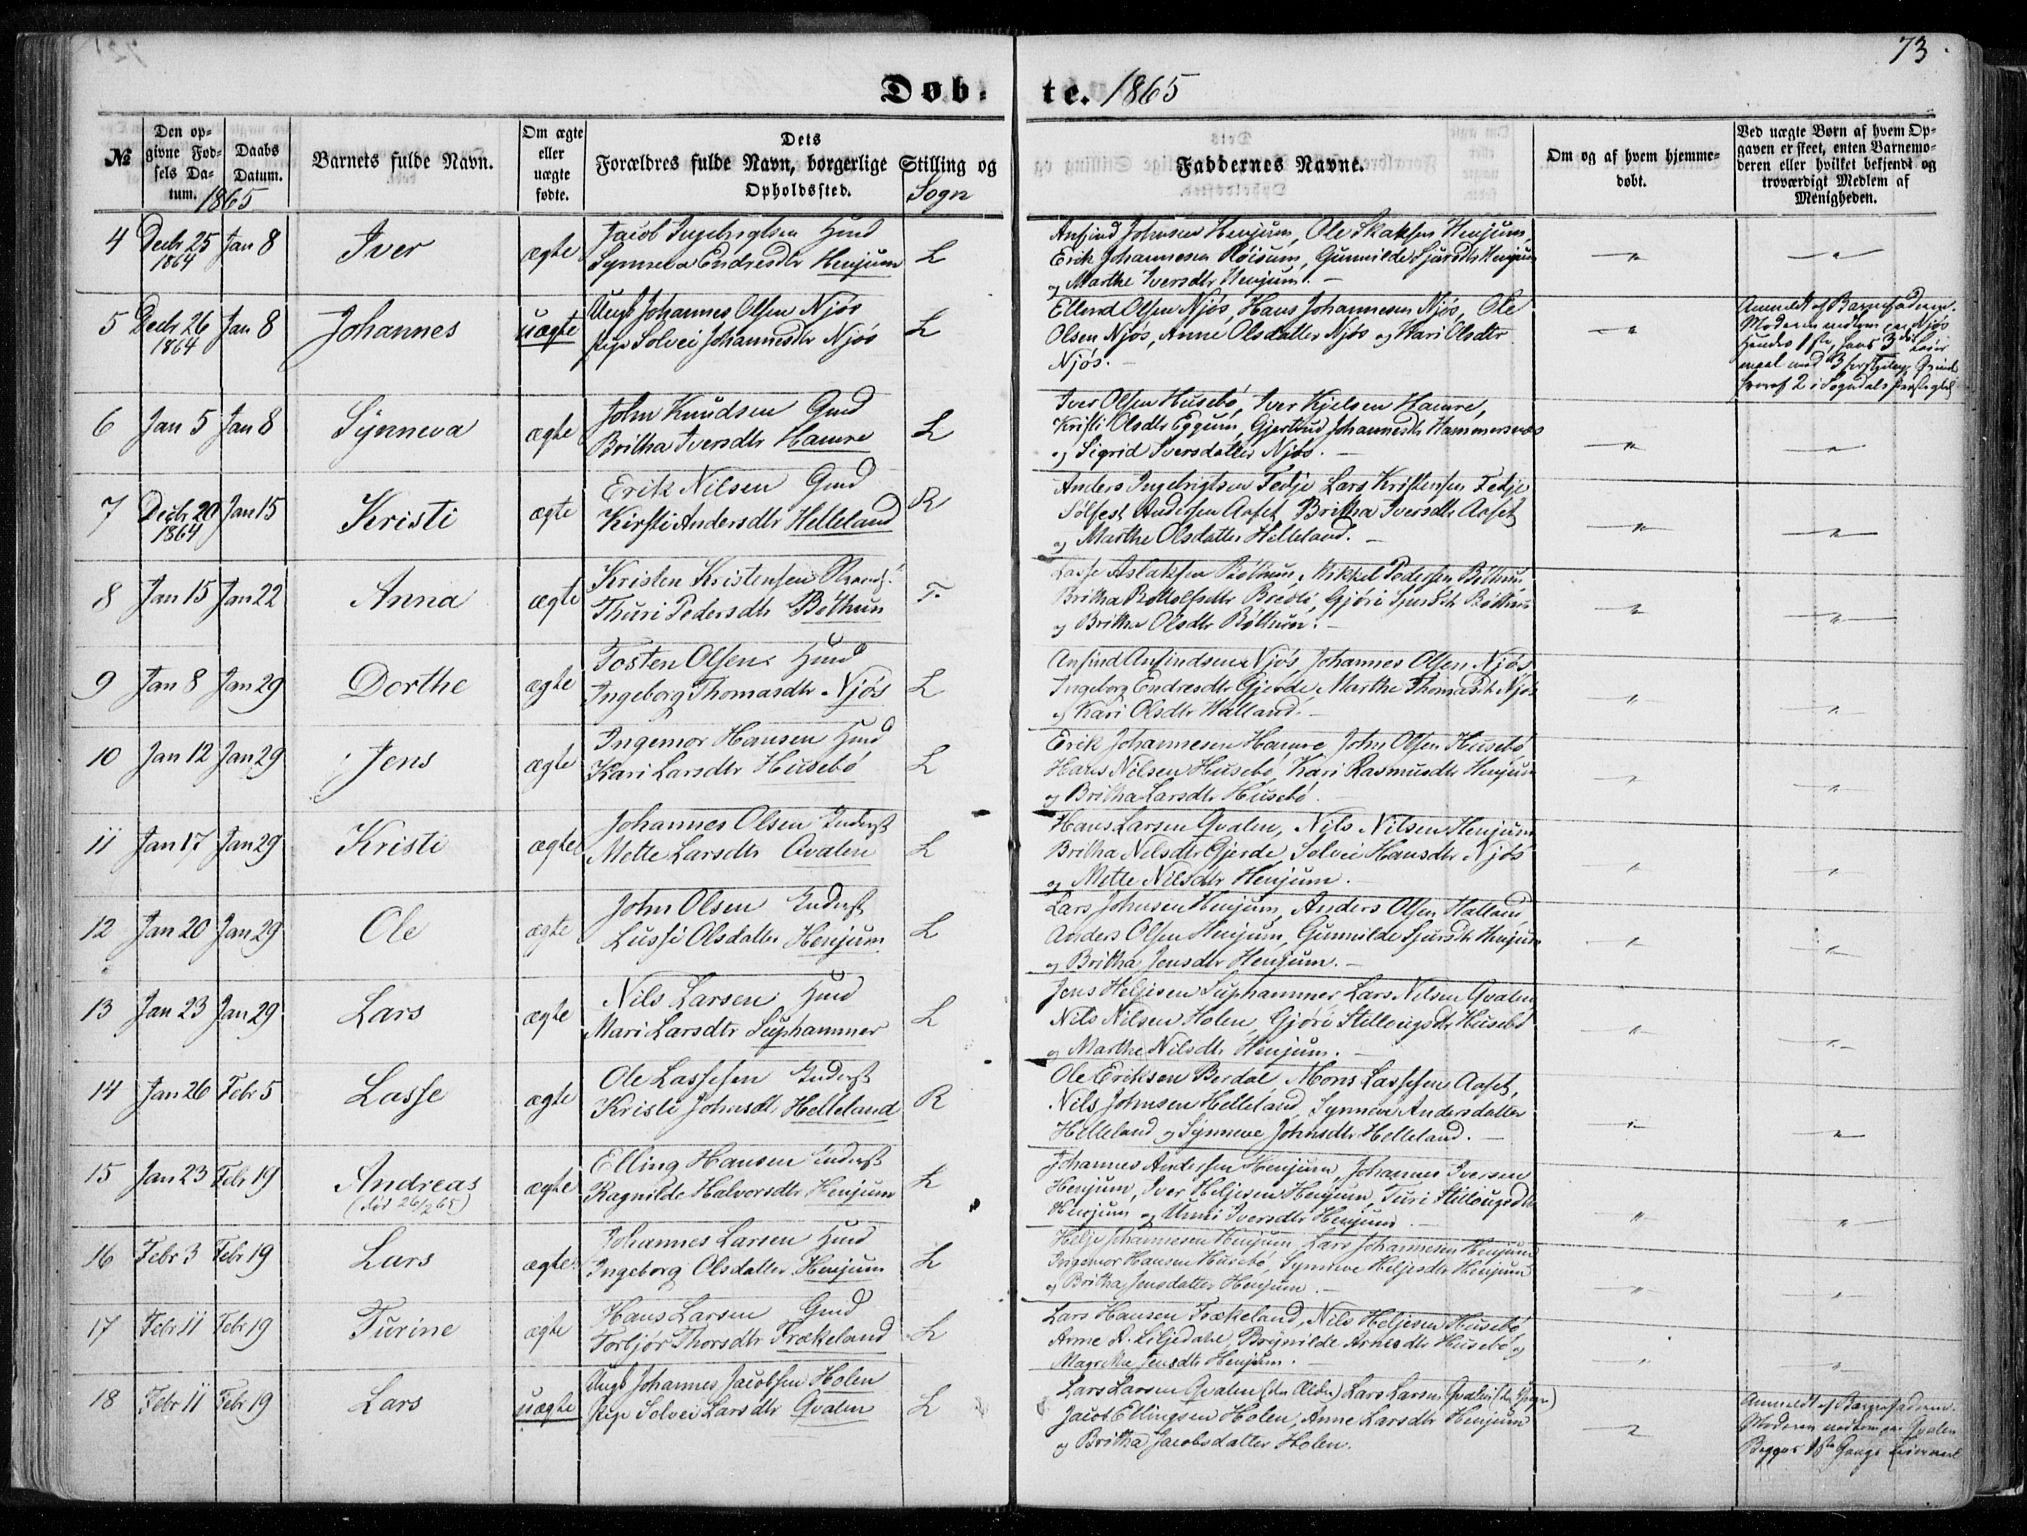 73
Døb-te. 1865
№
Den opgivne Fødsels Datum.
Daabs Datum.
1865
Barnets fulde Navn.
Om ægte eller uægte fødte.
Dets Forældres fulde Navn, borgerlige Stilling og Opholdssted.
Sogn
Faddernes Navne.
Om og af hvem hjemmedøbt.
Ved uægte Børn af hvem Opgaven er skeet, enten Barnemoderen eller hvilket bekjendt og troværdigt Medlem af Menigheden.
4 Decbr 25 1864 Jan 8 Iver ægte
Jacob Ingebrigtsen Hmd
Synneva Endresdtr Henjum L
Anfind Johnsen Henjum, Ole Henjum,
Erik Johannesen Røisum, Gunnilde Sjursdtr Henjum
og Marthe Iversdtr Henjum.
5 Decbr 26 1864 Jan 8 Johannes uægte
Ungk Johannes Olsen Njøs
Pige Solvei Johannesdtr Njøs L
Ellend Olsen Njøs, Hans Johannesen Njøs, Ole
Olsen Njøs, Anne Olsdatter Njøs og Kari Olsdtr
Njøs.
Anmeldt af Barnefaderen.
Moderen Njøs
Hendes 1ste, hans 3die
med 3
2 i Sogndals
6 Jan 5 Jan 8 Synneva ægte
John Knudsen Gmd
Britha Iversdtr Hamre L
Iver Olsen Husebø, Iver Kjelsen Hamre,
Kristi Olsdtr Eggum, Gjertrud Johannesdtr Hammersnæs
og Sigrid Iversdatter Njøs.
7 Decbr 20 1864 Jan 15 Kristi ægte
Erik Nilsen Gmd
Kirsti Andersdtr Helleland R
Anders Ingebrigtsen Fedje, Lars Kristensen Fedje
Sølfest Andersen Aafet, Britha Iversdtr Aafet
og Marthe Olsdatter Helleland.
8 Jan 15 Jan 22 Anna ægte
Kristen Kristensen
Thuri Pedersdtr Bøthun F.
Lasse Aslaksen Bøthun, Mikkel Pedersen Bøthun
Britha Bottolfsdtr Gjøri Sjursdtr Bøthun
og Britha Olsdtr Bøthun.
9 Jan 8 Jan 29 Dorthe ægte
Tosten Olsen Hmd
Ingeborg Thomasdtr Njøs L
Anfind Anfindsen Njøs, Johannes Olsen Njøs,
Ingeborg Endresdtr Gjerde, Marthe Thomasdtr Njøs
og Kari Olsdtr Halland.
10 Jan 12 Jan 29 Jens ægte
Ingemor Hansen Hmd
Kari Larsdtr Husebø L
Erik Johannesen Hamre, John Olsen Husebø
Hans Nilsen Husebø, Kari Rasmusdtr Henjum
og Britha Larsdtr Husebø.
11 Jan 17 Jan 29 Kristi ægte
Johannes Olsen Inderst
Mette Larsdtr Qvalen L
Hans Larsen Qvalen, Nils Nilsen Henjum
Britha Nilsdtr Gjerde, Solvei Hansdtr Njøs
og Mette Nilsdtr Henjum.
12 Jan 20 Jan 29 Ole ægte
John Olsen Inderst
Lussi Olsdatter Henjum L
Lars Johnsen Henjum, Anders Olsen Halland,
Anders Olsen Henjum, Gunnilde Sjursdtr Henjum
og Britha Jensdtr Henjum.
13 Jan 23 Jan 29 Lars ægte
Nils Larsen Hmd
Mari Larsdtr Suphammer L
Jens Heljesen Suphammer, Lars Nilsen Qvalen
Nils Nilsen Holen, Gjøri Stillougsdtr Husebø
og Marthe Nilsdtr Henjum.
14 Jan 26 Febr 5 Lasse ægte
Ole Lassesen Inderst
Kristi Johnsdtr Helleland R
Ole Eriksen Berdal, Mons Lassesen Aafet,
Nils Johnsen Helleland, Synneve Andersdatter
Helleland og Synneve Johnsdtr Helleland.
15 Jan 23 Febr 19 Andreas
(død 26/2 65) ægte
Elling Hansen Inderst
Ragnilde Halvorsdtr Henjum L
Johannes Andersen Henjum, Johannes Iversen
Henjum, Iver Heljesen Henjum, Turi Stillougsdtr
Henjum og Unni Iversdtr Henjum
16 Febr 3 Febr 19 Lars ægte
Johannes Larsen Hmd
Ingeborg Olsdatter Henjum L
Helje Johannesen Henjum, Lars Johannesen Henjum
Ingemor Hansen Husebø, Synneve Heljesdtr Henjum
og Britha Jensdatter Henjum.
17 Febr 11 Febr 19 Turine ægte
Hans Larsen Gmd
Torbjør Thorsdtr Frækeland L
Lars Hansen Frækeland, Nils Heljesen Husebø
Arne A. Liljedahl, Brynilde Arnesdtr Husebø og
Magrethe Jensdtr Henjum.
18 Febr 11 Febr 19 Lars uægte
Ungk Johannes Jacobsen Holen
Pige Solvei Larsdtr Qvalen L
Lars Larsen Qvalen (den Ældre) Lars Larsen Qvalen (den Yngre)
Jacob Ellingsen Holen, Anne Larsdtr Henjum
og Britha Jacobsdatter Holen.
Anmeldt af Barnefaderen.
Moderen Qvalen
Begges 1ste Gangs Leiermaal